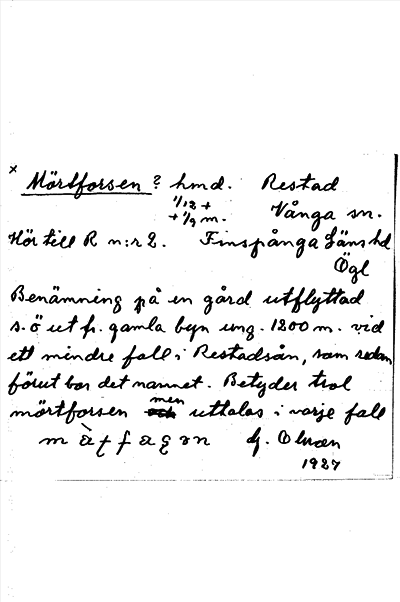 x Mörtforsen ? hmd. Restad
1/12 +
+ 1/9 m. Vånga sn.
Hör till R n:r 2. Finspånga läns hd
Ögl
Benämning på en gård utflyttad
s.ö ut fr. gamla byn ung. 1200 m. vid
ett mindre fall i Restadsån, som redan
förut bar det namnet. Betyder trol
mörtforsen men uttalas i varje fall
1927